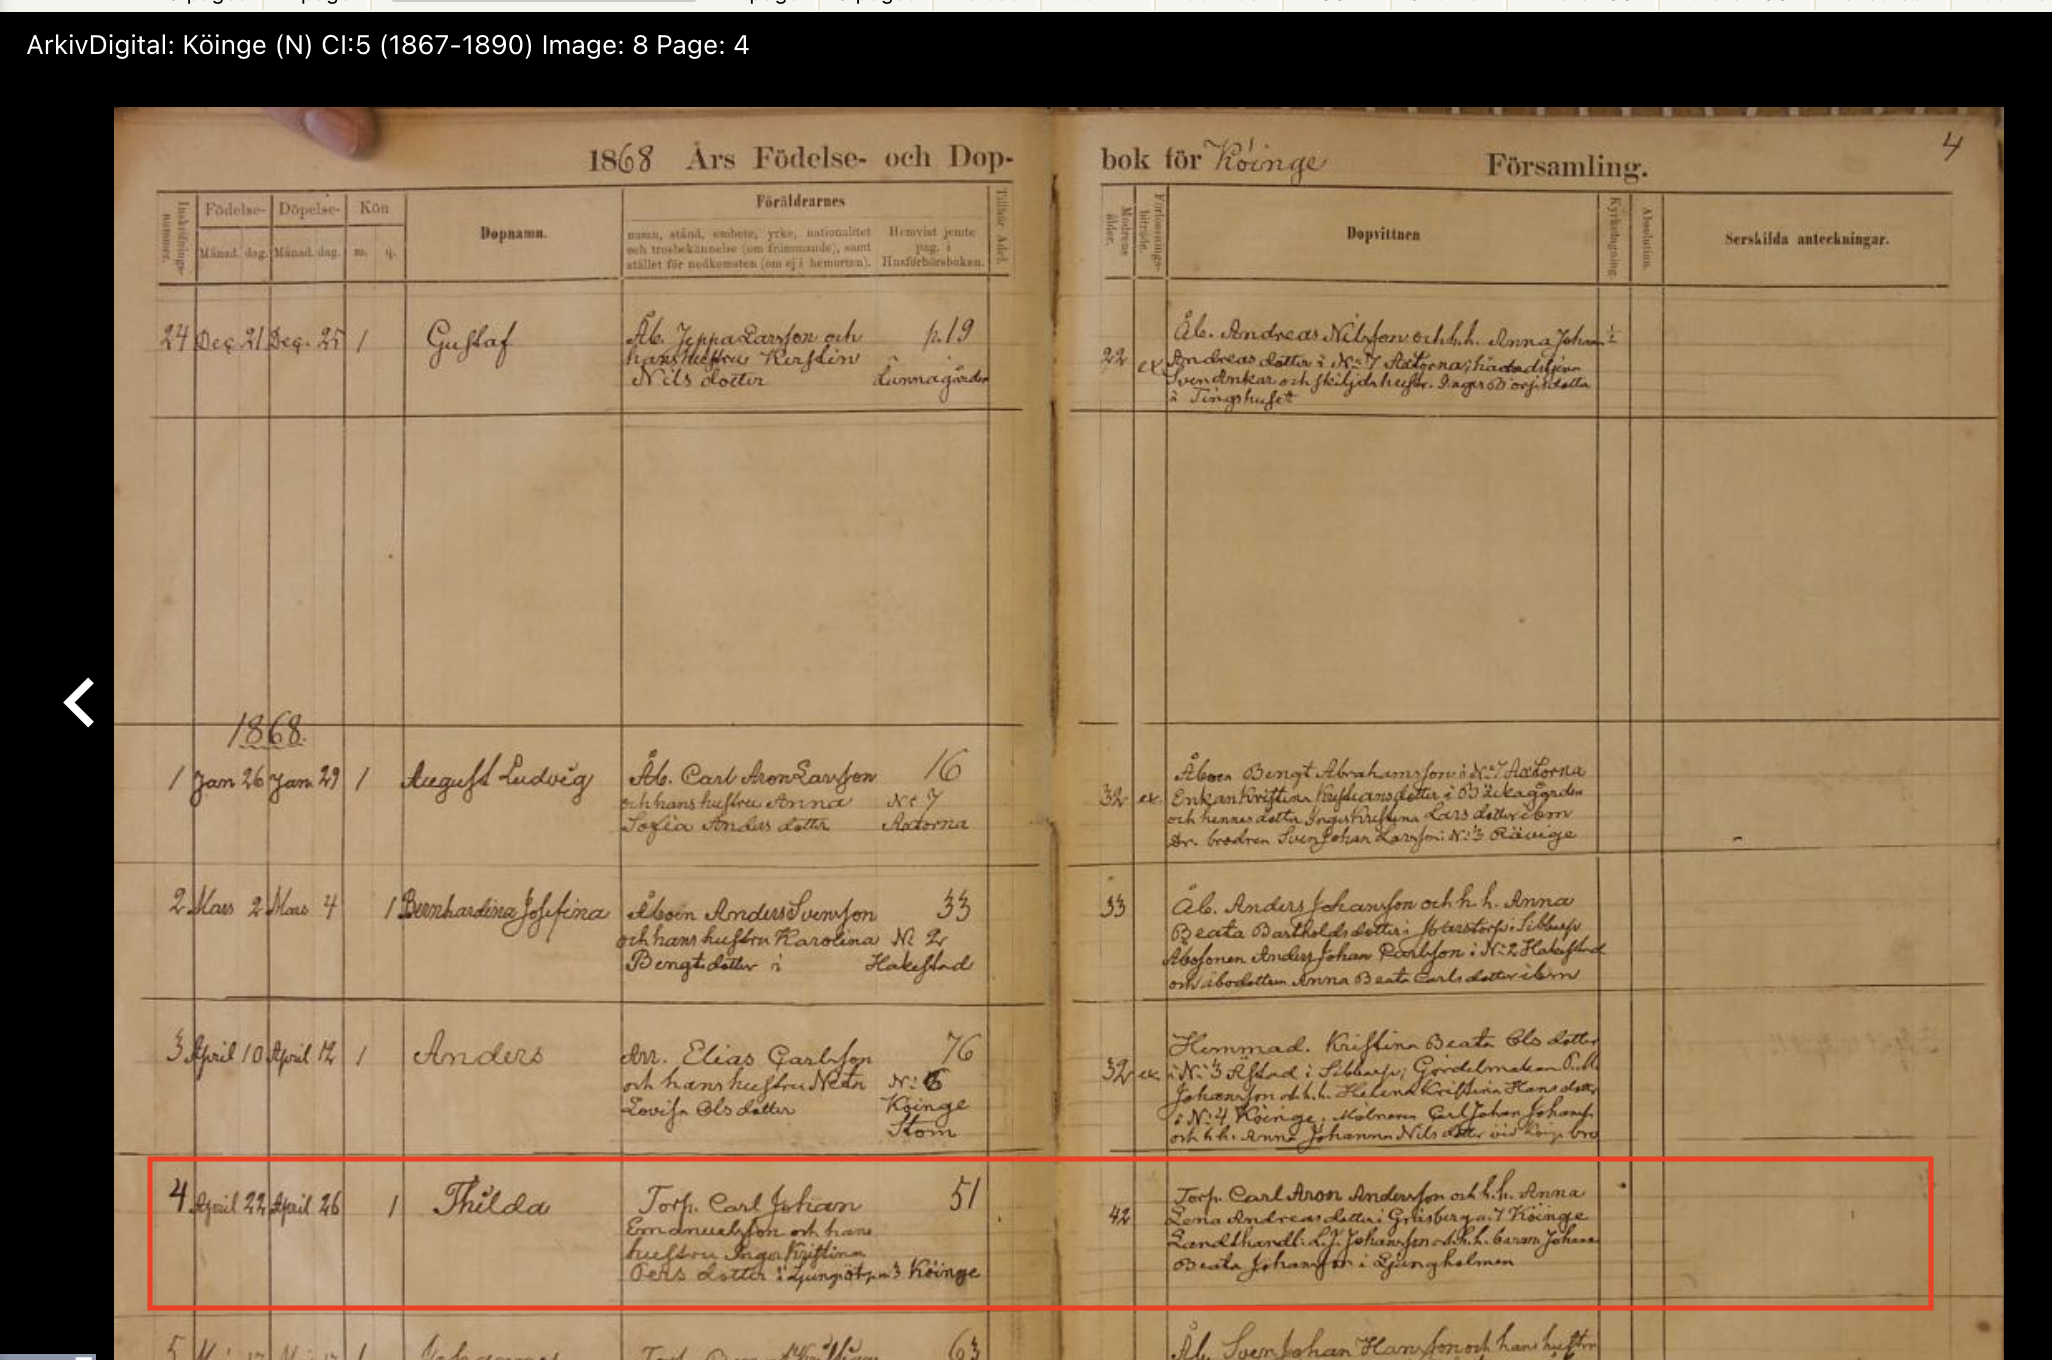 ArkivDigital: Köinge (N) CI:5 (1867-1890) Image: 8 Page: 4
1868 Års Födelse- och Dop-
bok för Köinge Församling.
4
Inskrifnings-nummer.
Födelse-
Månad. dag.
Döpelse-
Månad. dag.
Kön
m. q.
Dopnamn.
Föräldrarnes
namn, stånd, embete, yrke, nationalitet
och trosbekännelse (om främmande), samt
stället för nedkomsten (om ej i hemorten).
Hemvist jemte
pag. i
Husförhörsboken.
Tillhör Adel.
Modrens ålder.
Förlossnings-biträde.
Dopvittnen
Kyrkotagning.
Absolution.
Serskilda anteckningar.
24 Dec. 21 Dec. 25 1 Gustaf
Åb. Jeppa Larsson och p. 19
hans hustru Kerstin
Nils dotter
22 ex.
Åb. Andreas Nilsson och h. h. Anna Johan
Andreas dotter i No 7 Axtorna;
Sven Ankar och skiljda hustr. Inger
i Tingshuset
1868.
1 Jan 26 Jan. 29 1 August Ludvig
Åb. Carl Aron Larsson 16
och hans hustru Anna No 7
Sofia Anders dotter Axtorna
32 ex.
Åboen Bengt Abrahamsson i No 7 Axtorna
Enkan Kristina Kristiansdotter i Bäckagården
och hennes dotter Inger Kristina Lars dotter
Dr. brodren Sven Johan Larsson: No 3 Rävige
2 Mars 2 Mars 4 1 Bernhardina Josefina
Åboen Anders Svensson 33
och hans hustru Karolina No 2
Bengts dotter i Hakestad
33
Åb. Anders Johansson och h. h. Anna
Beata Bartholdsdotter i
Åbosonen Anders Johan Carlsson i No 2 Hakestad
och åbodottern Anna Beata Carls dotter
3 April 10 April 12 1 Anders
Arr. Elias Carlsson 76
och hans hustru Neta No 6
Lovisa Ols dotter Köinge
Stom
32 ex.
Hemmad. Kristina Beata Ols dotter
i No 3 i Sibbarp; Gördelmakaren
Johansson och h. h. Helena Kristina Hans dotter
i No 4 Köinge, Mölnaren Carl Johan
och h. h. Anna Johanna Nils dotter vid
4 April 22 April 26 1 Thilda
Torp. Carl Johan 51
Emanuelsson och hans
hustru Inger Kristina
Pers dotter i 3 Köinge
42
Torp. Carl Aron Andersson och h. h. Anna
Lena Andreas dotter i 7 Köinge
Landthandl: L. J. Johansson och h. h.
Beata Johansson i Ljungholmen
5
Torp. 63
Åb. Sven Johan Hansson och hans hustru